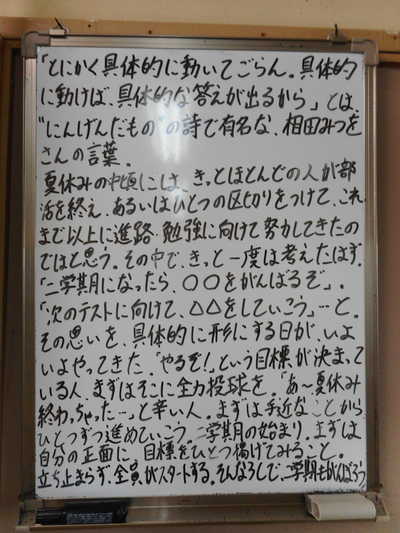 「とにかく具体的に動いてごらん。具体的
に動けば、具体的な答えが出るから」とは、
"にんげんだもの"の詩で有名な、相田みつを
さんの言葉。
夏休みの中頃には、きっとほとんどの人が部
活を終え、あるいはひとつの区切りをつけて、これ
まで以上に進路・勉強に向けて努力してきたの
ではと思う。その中で、きっと一度は考えたはず。
「二学期になったら、○○をがんばるぞ」。
「次のテストに向けて、△△をしていこう」…と。
その思いを、具体的に形にする日が、いよ
いよやってきた。「やるぞ!」という目標が決まって
いる人、まずはそこに全力投球を。「あ〜夏休み
終わっちゃった…」と辛い人。まずは手近なことから
ひとつずつ進めていこう。二学期の始まり、まずは
自分の正面に、目標をひとつ掲げてみること。
立ち止まらず、全員がスタートする。そんなろしで、二学期もがんばろう